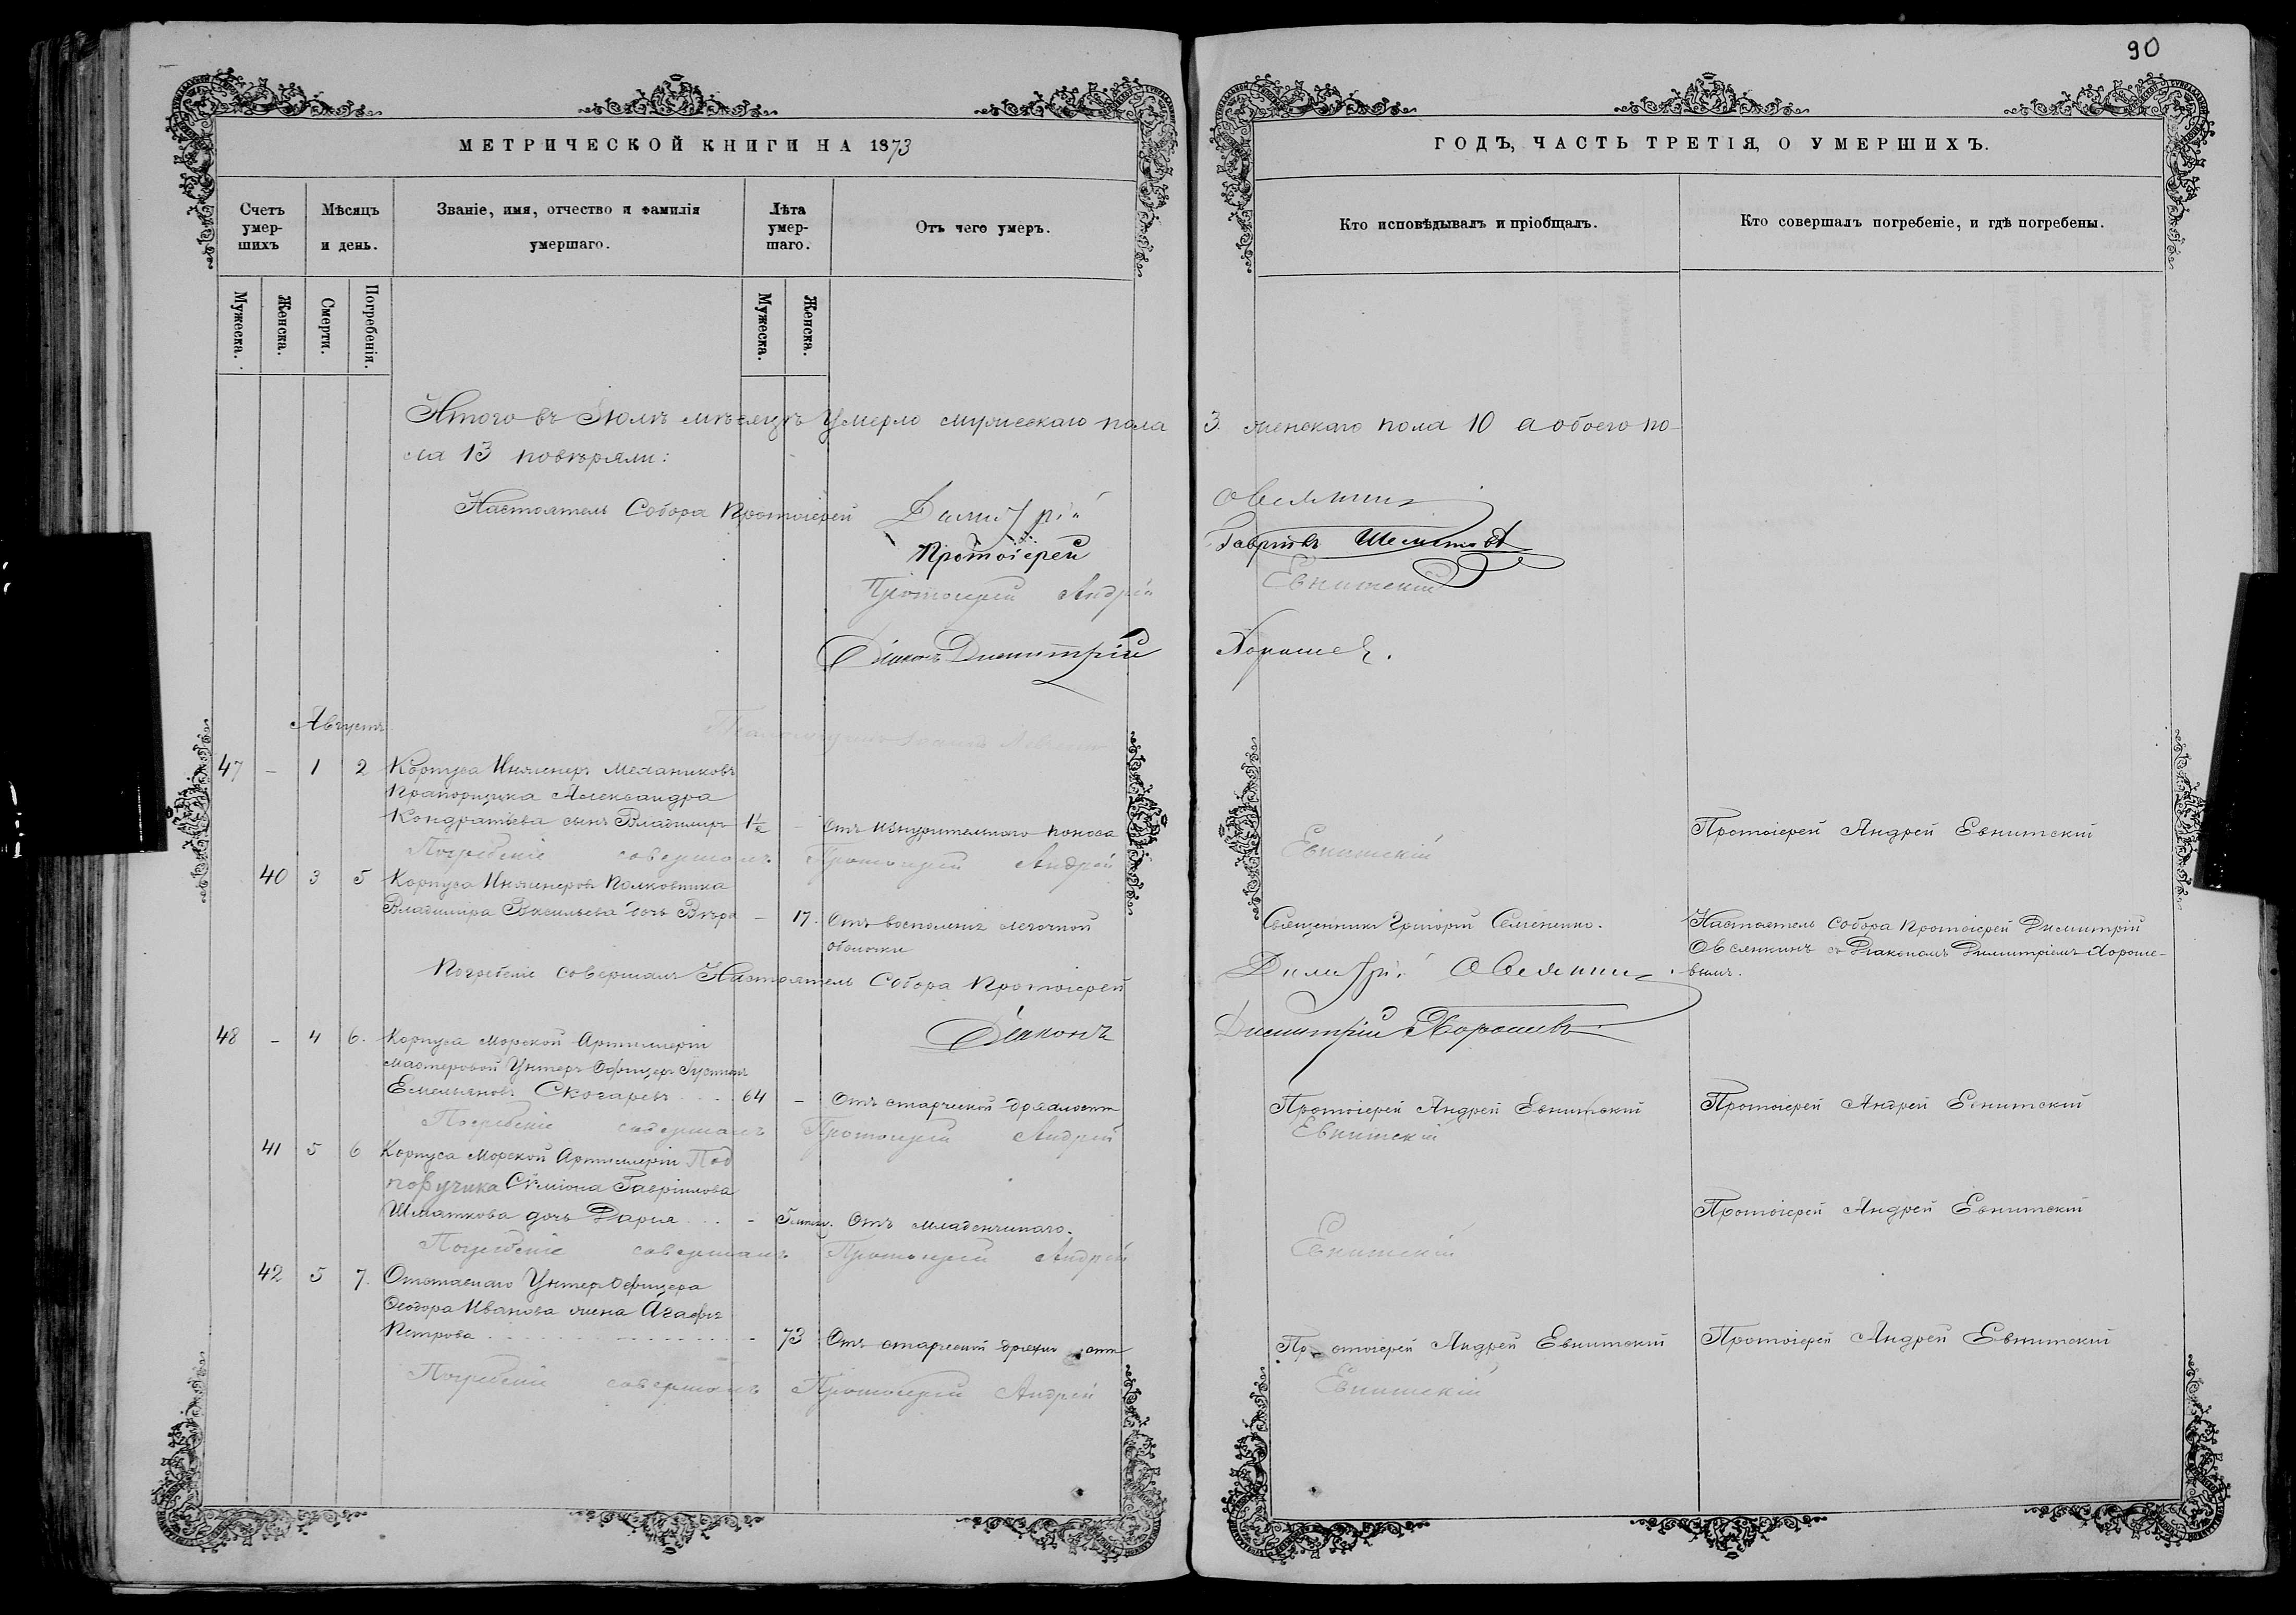 90
МЕТРИЧЕСКОЙ КНИГИ НА 1873
ГОДЪ, ЧАСТЬ ТРЕТІЯ, О УМЕРШИХЪ.
Счетъ умер-шихъ
Мѣсяцъ и день.
Званіе, имя, отчество и фамилія умершаго.
Лѣта умер-шаго.
Отъ чего умеръ.
Кто исповѣдывалъ и пріобщалъ.
Кто совершалъ погребеніе, и гдѣ погребены.
Мужеска.
Женска.
Смерти.
Погребенія.
Мужеска.
Женска.
Итого въ Іюлѣ мѣсяцѣ умерло мужескаго пола 3. женскаго пола 10 а обоего по-
ла 13 повѣряли:
Настоятель Собора Протоіерей Димитрій Овсянкинъ
Протоіерей Гавріилъ
Протоіерей Андрей Евнитскій
Діаконъ Димитрій Хорошев.
Августъ
47 – 1 2 Корпуса Инженеръ Механиковъ
Прапорщика Александра
Кондратьева сынъ Владимиръ 1½ – Отъ изнурительнаго поноса
Протоіерей Андрей Евнитскій
Погребеніе совершалъ Протоіерей Андрей Евнитскій
40 3 5 Корпуса Инженеровъ Полковника
Владиміра Васильева дочь Вѣра – 17. Отъ воспаленія легочной
оболочки
Священникъ Григорій Семененко.
Настоятель Собора Протоіерей Димитрій
Овсянкинъ съ Діакономъ Димитріемъ Хороше-
вымъ.
Погребеніе совершалъ Настоятель Собора Протоіерей Димитрій Овсянкинъ
Діаконъ Димитрій Хорошевъ
48 – 4 6. Корпуса Морской Артиллеріи
мастеровой Унтеръ Офицеръ
Емельяновъ Скогаревъ . . . 64 – Отъ старческой дряхлости
Протоіерей Андрей Евнитскій
Протоіерей Андрей Евнитскій
Погребеніе совершалъ Протоіерей Андрей Евнитскій
41 5 6 Корпуса Морской Артиллеріи Под
поручика Симіона Гавріилова
Шматкова дочь Дарія . . . – 5 Отъ младенчикаго.
Протоіерей Андрей Евнитскій
Погребеніе совершалъ Протоіерей Андрей Евнитскій
42 5 7. Отставнаго Унтеръ Офицера
Ѳеодора Иванова жена Агафія
Петрова – 73 Отъ старческой
Протоіерей Андрей Евнитскій
Протоіерей Андрей Евнитскій
Погребеніе совершалъ Протоіерей Андрей Евнитскій